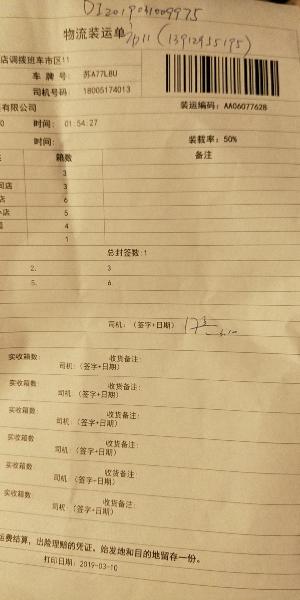 DI2019031009975
物流装运单 (13912455195)
店调拨班车市区11
车 牌 号: 苏A77L8U
司机号码: 18005174013
有限公司 装运编码: AA06077628
0 时间: 01:54:27
时间: 装载率: 50%
箱数 备注
3
司店 3
店 6
店 5
4
1
总封签数:1
2. 3
5. 6
司机: (签字+日期)
实收箱数: 收货备注:
司机: (签字+日期)
实收箱数 收货备注:
司机: (签字+日期)
实收箱数 收货备注:
司机: (签字+日期)
实收箱数 收货备注:
司机: (签字+日期)
实收箱数 收货备注:
司机: (签字+日期)
实收箱数 收货备注:
司机: (签字+日期)
运费结算, 出险理赔的凭证。始发地和目的地留存一份。
打印日期: 2019-03-10